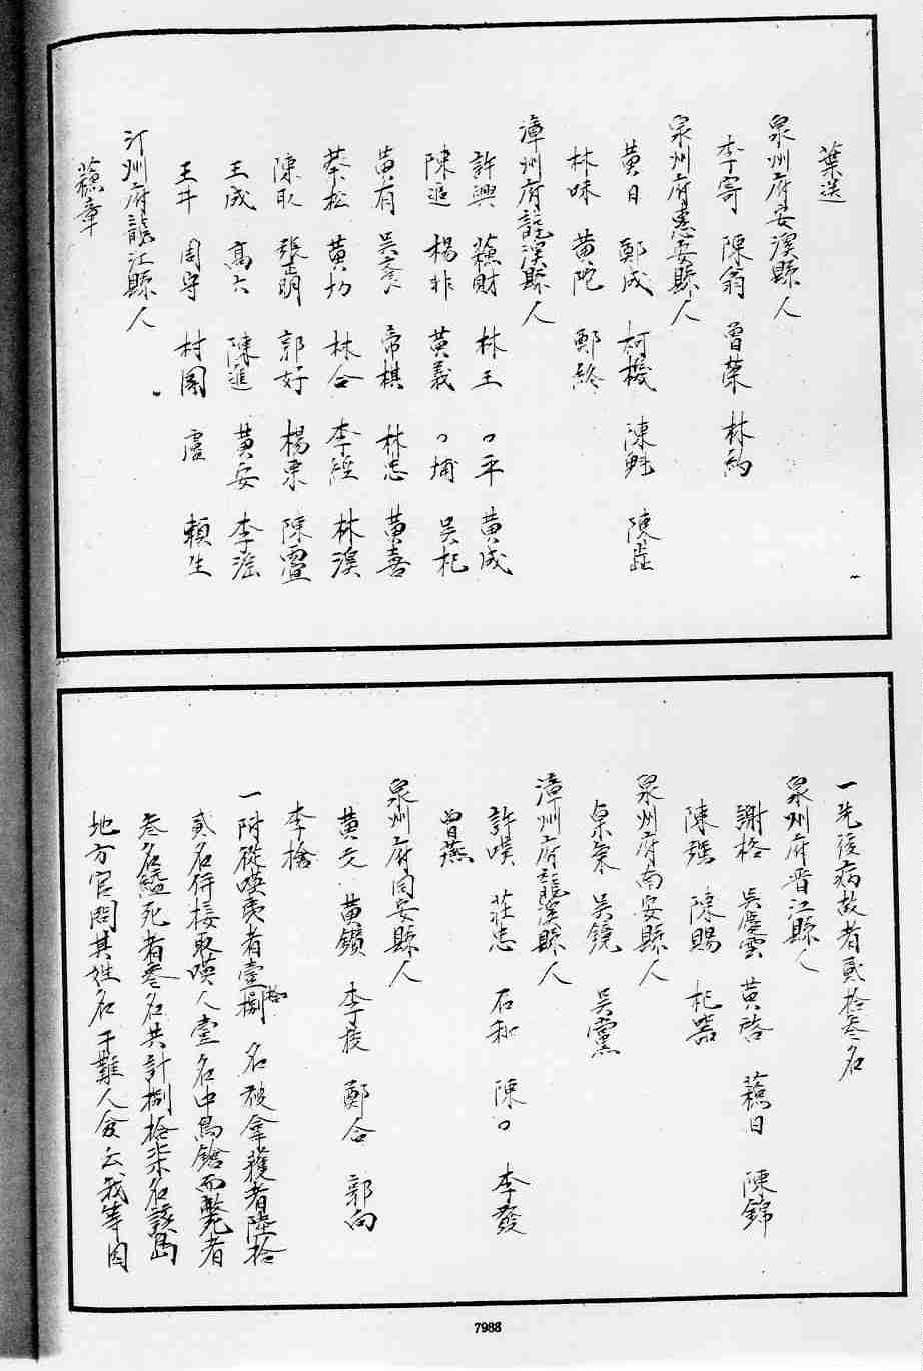 葉送
泉州府安溪縣人
李寄 陳翁 曾榮 林約
泉州府惠安縣人
黃日 鄭成 柯機 陳魁 陳
林味 黃陀 鄭終
漳州府龍溪縣人
許興 蘓財 林王 口平 黃成
陳追 楊非 黃義 口埔 吳杞
黃有 吳 帝棋 林忠 黃喜
蔡松 黃切 林合 李經 林溪
陳取 張明 郭好 楊東 陳靈
王成 高六 陳進 黃安 李滛
王牛 周守 村園 盧 賴生
汀州府龍江縣人
蘓章
一先後病故者貳拾叁名
泉州府晋江縣人
謝格 吳慶雲 黃啓 蘓日 陳錦
陳強 陳賜 杞器
泉州府南安縣人
吳鏡 吳黨
漳州府龍溪縣人
許嘆 莊忠 石和 陳口 李發
曾燕
泉州府同安縣人
黃元 黃鑛 李 鄭合 郭向
李搶
一附從嘆夷者壹拾捌名被拿獲者陸拾
貳名併接取嘆人壹名中鳥鎗而斃者
叁名縊死者叁名共計捌拾柒名該島
地方官問其姓名于難人僉云我等因
7988